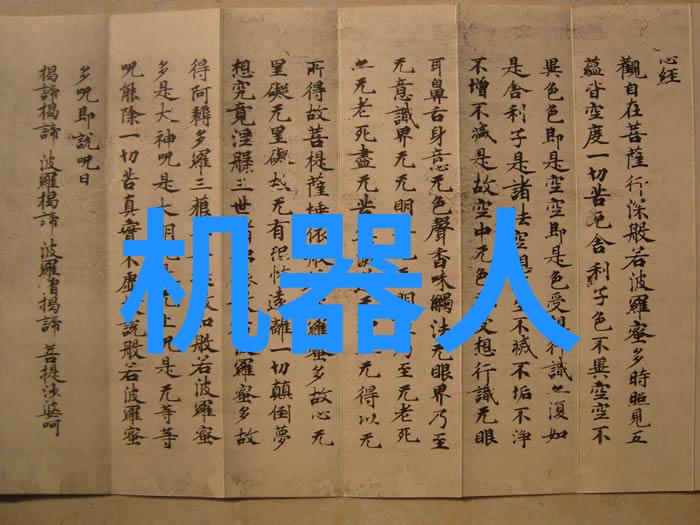 心経
觀自在菩薩行深般若波羅蜜多時照見五
蘊皆空度一切苦厄舍利子色不異空空不
異色色即是空空即是色受想行識亦復如
是舍利子是諸法空想不滅不垢不淨
不增不減是故空中无色受想行識无眼
耳鼻舌身意无色聲香味觸法无眼界乃至
无意識界无无明乃至无老死
亦无老死盡无苦无得以无
所得故菩提薩埵依般羅蜜多故心无
罣礙无罣礙故无有恐怖遠離一切顛倒夢
想究竟涅槃三世諸羅蜜多故
得阿耨多羅三藐故知般若波羅蜜
多是大神呪是大明呪是无上呪是无等等
呪能除一切苦真實不虛故說般若波羅蜜
多呪即說呪曰
揭諦揭諦 波羅揭諦 波羅僧揭諦 菩提沙婆呵
机器人